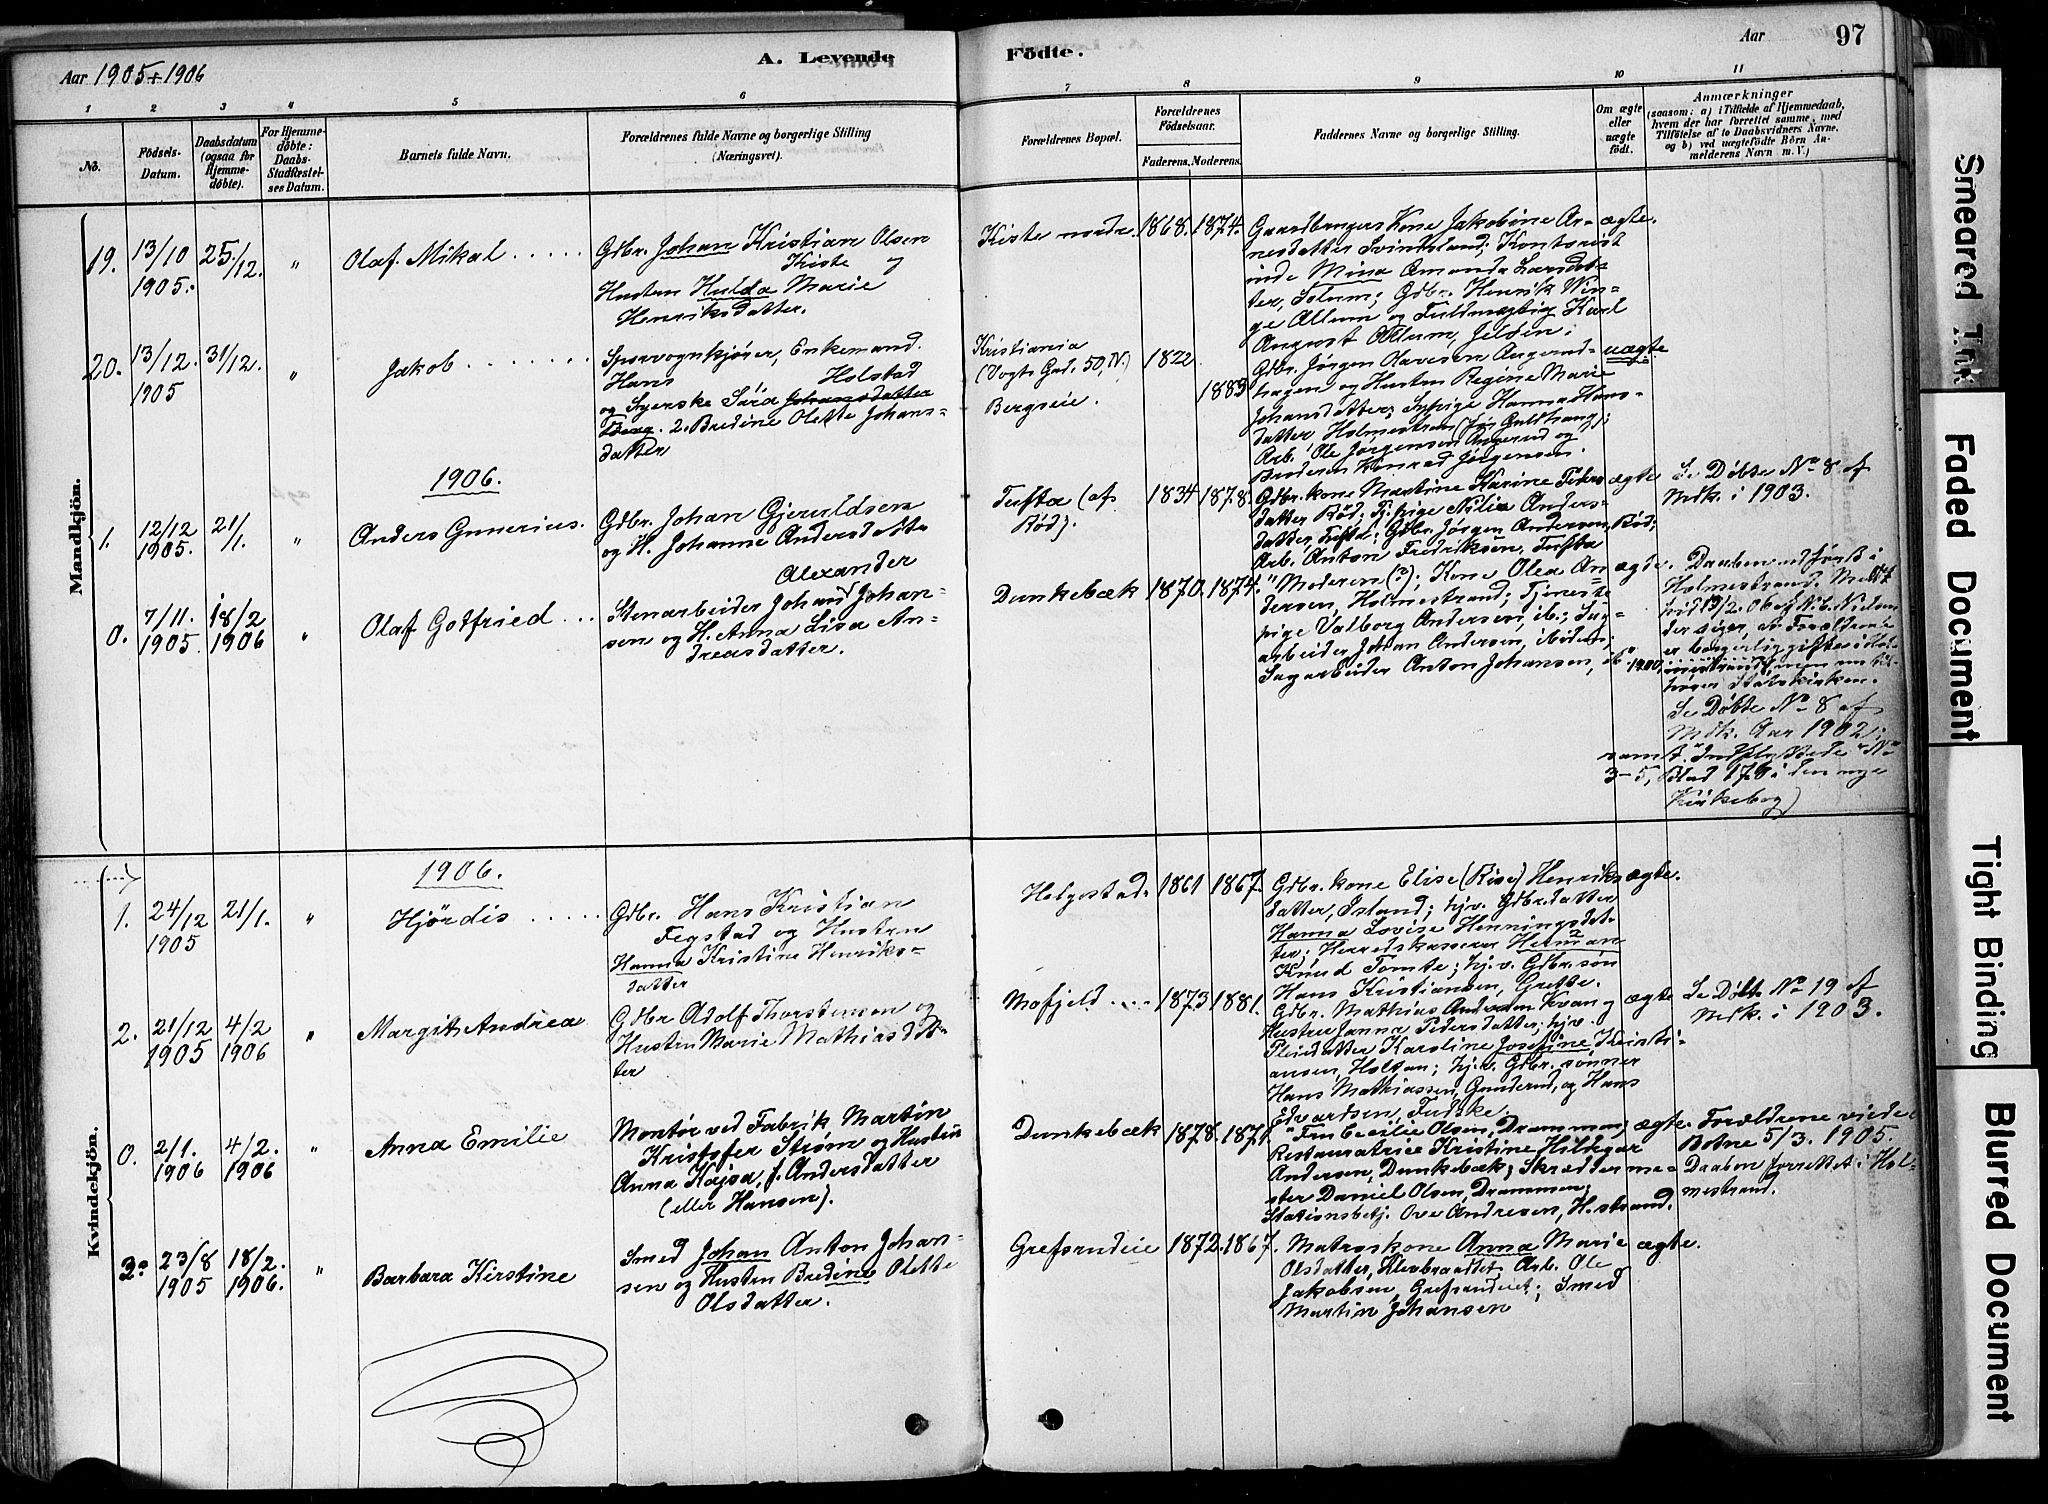 Aar 1905+1906
A. Levende
Födte.
Aar
97
1
2
3
4
5
6
7
8
9
10
11
No.
Födsels-
Datum.
Daabsdatum
(ogsaa for
Hjemme-
döbte).
For Hjemme-
døbte:
Daabs-
Stadfæstel-
ses Datum.
Barnets fulde Navn.
Forældrenes fulde Navne og borgerlige Stilling
(Næringsvei).
Forældrenes Bopæl.
Forældrenes
Födselsaar.
Faderens.
Moderens.
Faddernes Navne og borgerlige Stilling.
Om ægte
eller
uægte
født.
Anmærkninger
(saasom: a) i Tilfælde af Hjemmedaab,
hvem der har forrettet samme, med
Tilföielse af to Daabsvidners Navne,
og b) ved uægtefödte Börn An-
melderens Navn m. V.)
Mandkjön.
19.
13/10
1905.
25/12.
"
Olaf Mikal
Gdbr. Johan Kristian Olsen
Kiste og
Hustru Hulda Marie
Henriksdatter.
Kiste nordre.
1868.
1874.
Gaardbrugers Kone Jakobine Ar-
nesdatter Svindsland; Kontorist
inde Mina Amanda Larsdat-
ter, Solum; Gdbr. Henrik Win-
ge Allum og Fuldmægtig Karl
August Allum, Jelöen;
ægte.
20.
13/12.
1905
31/12.
"
Jakob
Sporvognkjører, Enkemand
Hans Holstad
og Syerske Sara Johansdatter
Berg. 2. Bredine Olette Johans-
datter
Kristiania
(Vogts Gad. 50, IV.)
Bergseie.
1822
1883
Gdbr. Jørgen Olavesen Angerud-
hagen og Hustru Regine Marie
Johansdatter; Sypige Hanna Hans-
datter Holmestrand
Arb. Ole Jørgensen Angerud og
Broderen Konrad Jørgensen.
uægte
1906.
1.
12/12
1905.
21/1.
"
Anders Gunerius.
Gdbr. Johan Gjeruldsen
og H. Johanne Andersdatter
Tufta (af
Rød).
1834
1878.
Gdbr.kone Martine Karine Peders
datter Rød; Tj.pige Nilia Anders-
datter, Tufta; Gdbr. Jørgen Andersen, Rød;
Arb. Anton Fredriksen, Tufta
ægte
Se Døbte No 8 af
Mdk. i 1903.
0.
7/11.
1905.
18/2
1906
"
Olaf Gotfried
Alexander
Stenarbeider Johan Johan-
sen og H. Anna Lisa An-
dreasdatter.
Dunkebæk
1870.
1874.
"Moderen (?); Kone Olea An-
dersen, Holmestrand; Tjeneste
pige Valborg Andersen, ib.; Sag-
arbeider Johan Andersen, ibidem;
Sagarbeider Anton Johansen, ib"
ægte.
Daaben udført i
Holmestrand. Meldt
hid 19/2. 06 af
der siger, at Forældrene
er borgerlig gifte i Hol-
mestrand 1900, men nu til-
hører Statskirken.
Se Døbte No 8 af
Mdk. Aar 1902;
samt "Indflyttede" No
3-5, Blad 176 i den nye
Kirkebog)
Kvindekjön.
1906.
1.
24/12
1905
21/1.
"
Hjördis
Gdbr. Hans Kristian
Fegstad og Hustru
Hanna Kristine Henriks-
datter
Helgestad.
1861
1867.
Gdbr.kone Elise (Rise) Henriks
datter, Island; hjv. Gdbr.datter
Hanna Lovise Henningsdat-
ter; Herredskasserer Herman
Knud Tomte; hj.v. Gdbr.søn
Hans Kristiansen, Grette.
ægte.
2.
21/12
1905
4/2
1906
"
Margit Andrea
Gdbr Adolf Thorstensen og
Hustru Marie Mathiasdat-
ter
Mofjeld
1873
1881.
Gdbr. Mathias Andersen Kvan og
Hustru Janna Pedersdatter; hjv.
Pleiedatter Karoline Josefine Kristi-
ansen, Holtan; hj.v. Gdbr.sønner
Hans Mathiassen, Gunderud, og Hans
Edvardsen, Fuske.
ægte
Se Døbte No 19 af
Mdk. i 1903.
0.
2/1.
1906
4/2.
1906
"
Anna Emilie
Montør ved Fabrik Martin
Kristofer Strøm og Hustru
Anna Kajsa, f. Andersdatter
(eller Hansen).
Dunkebæk
1878.
1871.
"Fru Cecilie Olsen, Drammen;
Restauratrice Kristine Hildegar
Andersen, Dunkebæk; Skrædderme-
ster Daniel Olsen, Drammen;
Stationsbetj. Ove Andresen, H.strand.
ægte.
Forældrene viede i
Botne 5/3. 1905.
Daaben forrettet i Hol-
mestrand.
3.
23/8
1905
18/2.
1906.
"
Barbara Kirstine
Smed Johan Anton Johan-
sen og Hustru Bredine Olette
Olsdatter.
Grefsrudeie
1872.
1867.
Matroskone Anna Marie
Olsdatter, Klevbraadtet. Arb. Ole
Jakobsen, Grefsrudeiet; Smed
Martin Johansen
ægte.
Smeared Ink
Faded Document
Tight Binding
Blurred Document